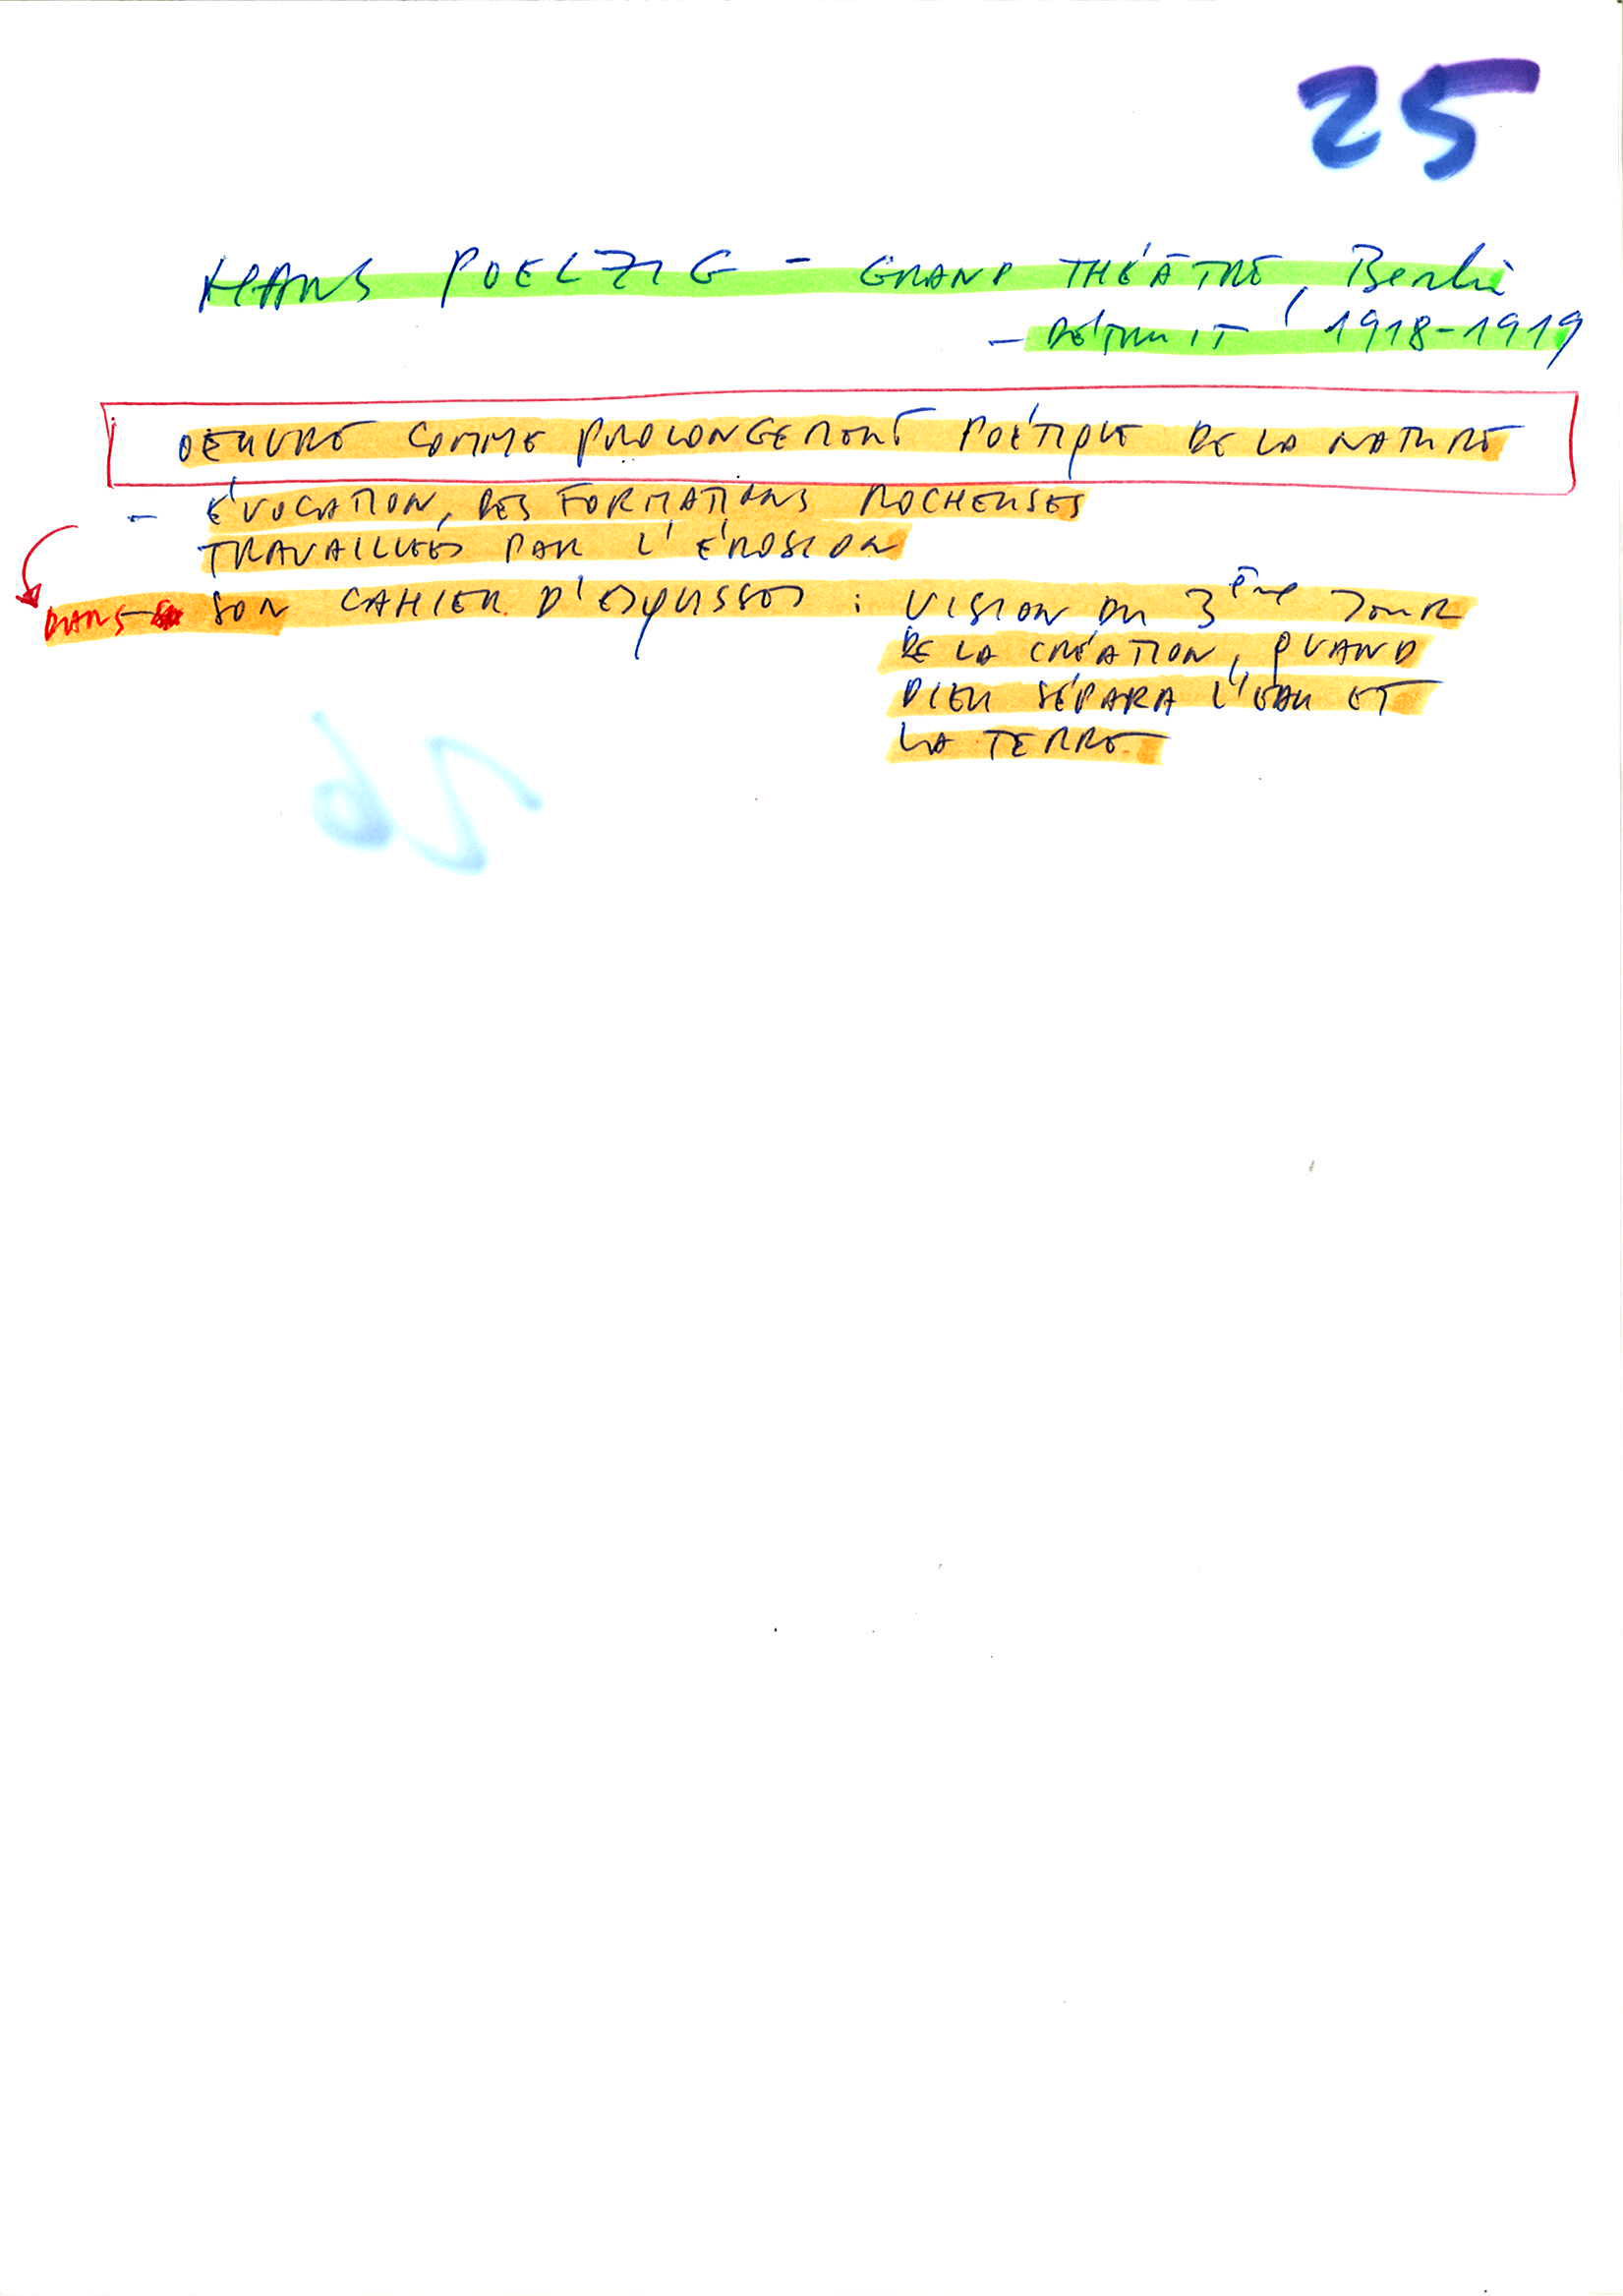 25
HANS POELZIG - GRAND THÉÂTRE, Berlin
- DÉTRUIT 1918-1919
OEUVRE COMME PROLONGEMENT POÉTIQUE DE LA NATURE
- ÉVOCATION, DES FORMATIONS ROCHEUSES
TRAVAILLÉES PAR L'ÉROSION
DANS SON CAHIER D'ESQUISSES : VISION DU 3ème JOUR
DE LA CRÉATION, QUAND
DIEU SÉPARA L'EAU ET
LA TERRE